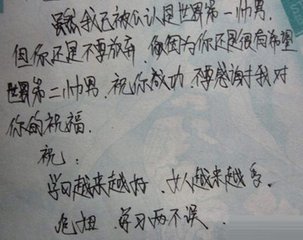 虽然我已被公认是世界第一帅男,
但你还是不要放弃,因为你还是很有希望
世界第二帅男.祝你成功.不要感谢我对
你的祝福.
祝:
学习越来越好.女人越来越多.
泡妞.学习两不误.